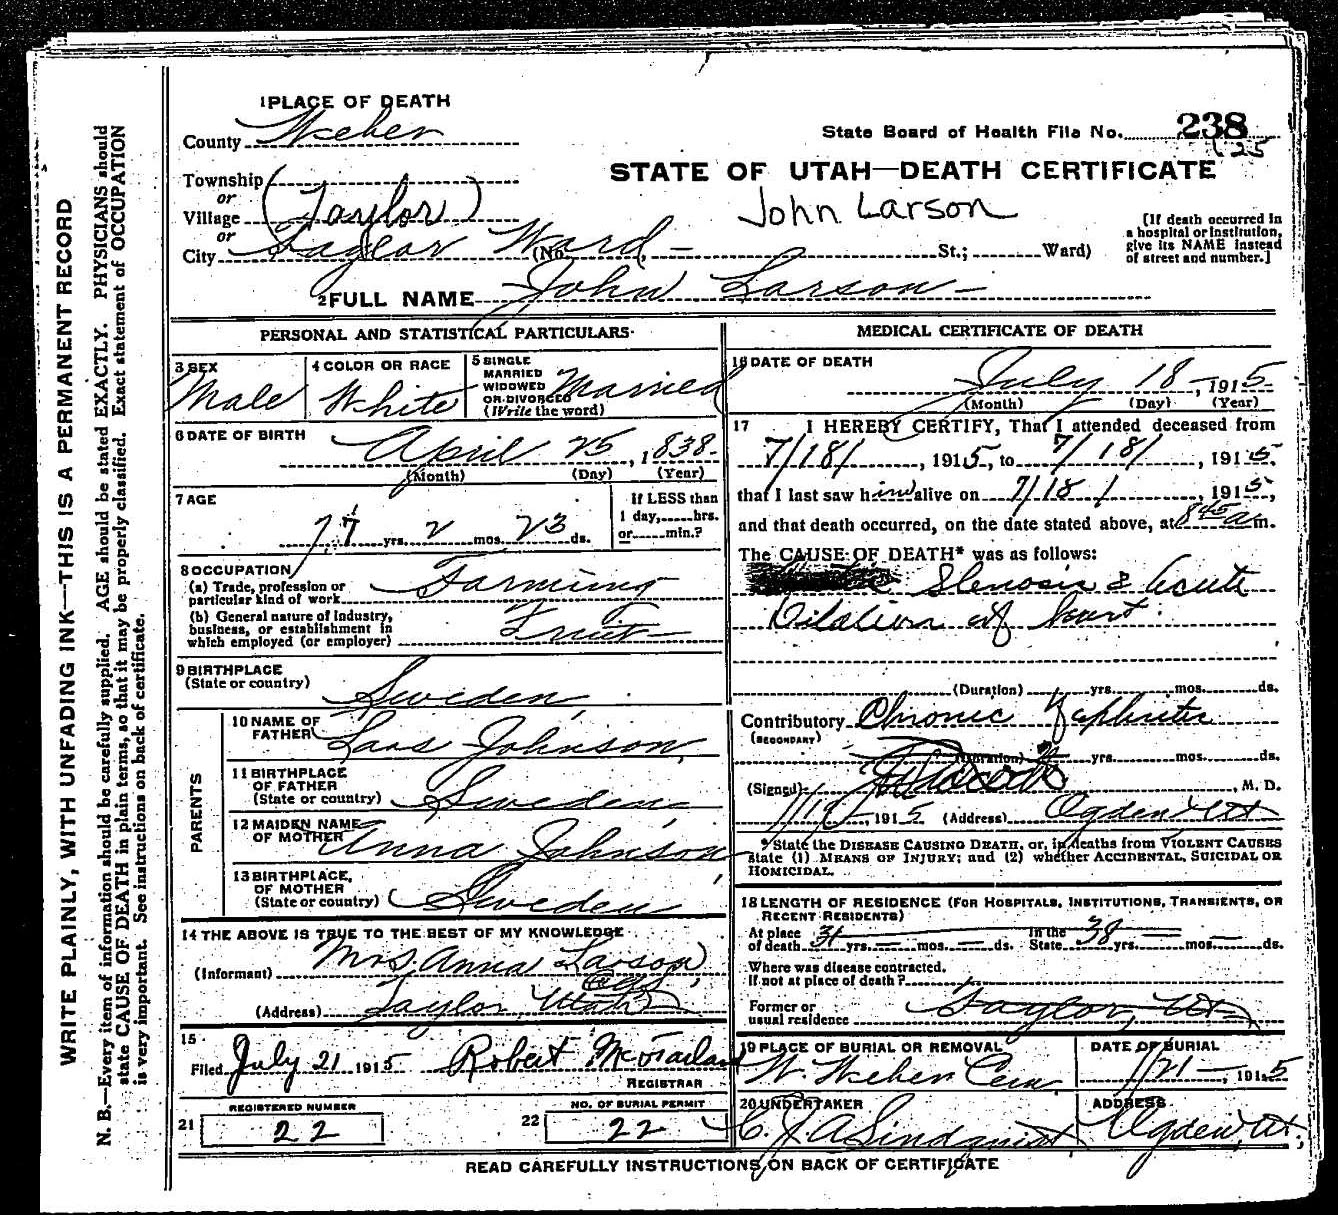 1 PLACE OF DEATH
County Weber
State Board of Health File No. 238
125
STATE OF UTAH—DEATH CERTIFICATE
Township
or
Village (Taylor)
John Larson
or
City Taylor Ward (No. — St.; Ward)
[If death occurred in
a hospital or institution,
give its NAME instead
of street and number.]
2 FULL NAME John Larson —
PERSONAL AND STATISTICAL PARTICULARS
3 SEX
Male
4 COLOR OR RACE
White
5 SINGLE
MARRIED
WIDOWED
OR DIVORCED
(Write the word)
Married
6 DATE OF BIRTH
April 25, 1838.
(Month) (Day) (Year)
7 AGE
77 yrs. 2 mos. 23 ds.
If LESS than
1 day, hrs.
or min.?
8 OCCUPATION
(a) Trade, profession or
particular kind of work Farming
(b) General nature of industry,
business, or establishment in
which employed (or employer) Fruit
9 BIRTHPLACE
(State or country) Sweden
PARENTS
10 NAME OF
FATHER Lars Johnson
11 BIRTHPLACE
OF FATHER
(State or country) Sweden
12 MAIDEN NAME
OF MOTHER Anna Johnson
13 BIRTHPLACE
OF MOTHER
(State or country) Sweden
14 THE ABOVE IS TRUE TO THE BEST OF MY KNOWLEDGE
(Informant) Mrs. Anna Larson
(Address) Taylor, Utah
15
Filed July 21 1915 Robert McFarland
REGISTRAR
21 REGISTERED NUMBER
22
22 NO. OF BURIAL PERMIT
22
MEDICAL CERTIFICATE OF DEATH
16 DATE OF DEATH
July 18 — 1915
(Month) (Day) (Year)
17 I HEREBY CERTIFY, That I attended deceased from
7/18/, 1915, to 7/18/, 1915,
that I last saw him alive on 7/18/, 1915,
and that death occurred, on the date stated above, at 8 45 a m.
The CAUSE OF DEATH* was as follows:
Stenosis & Acute
Dilation of heart
(Duration) yrs. mos. ds.
Contributory Chronic Nephritis
(SECONDARY)
(Duration) yrs. mos. ds.
(Signed) , M. D.
1915 (Address) Ogden Ut
*State the DISEASE CAUSING DEATH, or, in deaths from VIOLENT CAUSES
state (1) MEANS OF INJURY; and (2) whether ACCIDENTAL, SUICIDAL OR
HOMICIDAL.
18 LENGTH OF RESIDENCE (FOR HOSPITALS, INSTITUTIONS, TRANSIENTS, OR
RECENT RESIDENTS)
At place
of death 31 yrs. — mos. — ds. In the
State 38 yrs. — mos. — ds.
Where was disease contracted,
if not at place of death?
Former or
usual residence Taylor, Ut
19 PLACE OF BURIAL OR REMOVAL
W. Weber Cem
DATE OF BURIAL
7/21 —, 1915
20 UNDERTAKER
C. J. A Lindquist
ADDRESS
Ogden, Ut.
READ CAREFULLY INSTRUCTIONS ON BACK OF CERTIFICATE
WRITE PLAINLY, WITH UNFADING INK—THIS IS A PERMANENT RECORD
N. B.—Every item of information should be carefully supplied. AGE should be stated EXACTLY. PHYSICIANS should
state CAUSE OF DEATH in plain terms, so that it may be properly classified. Exact statement of OCCUPATION
is very important. See instructions on back of certificate.